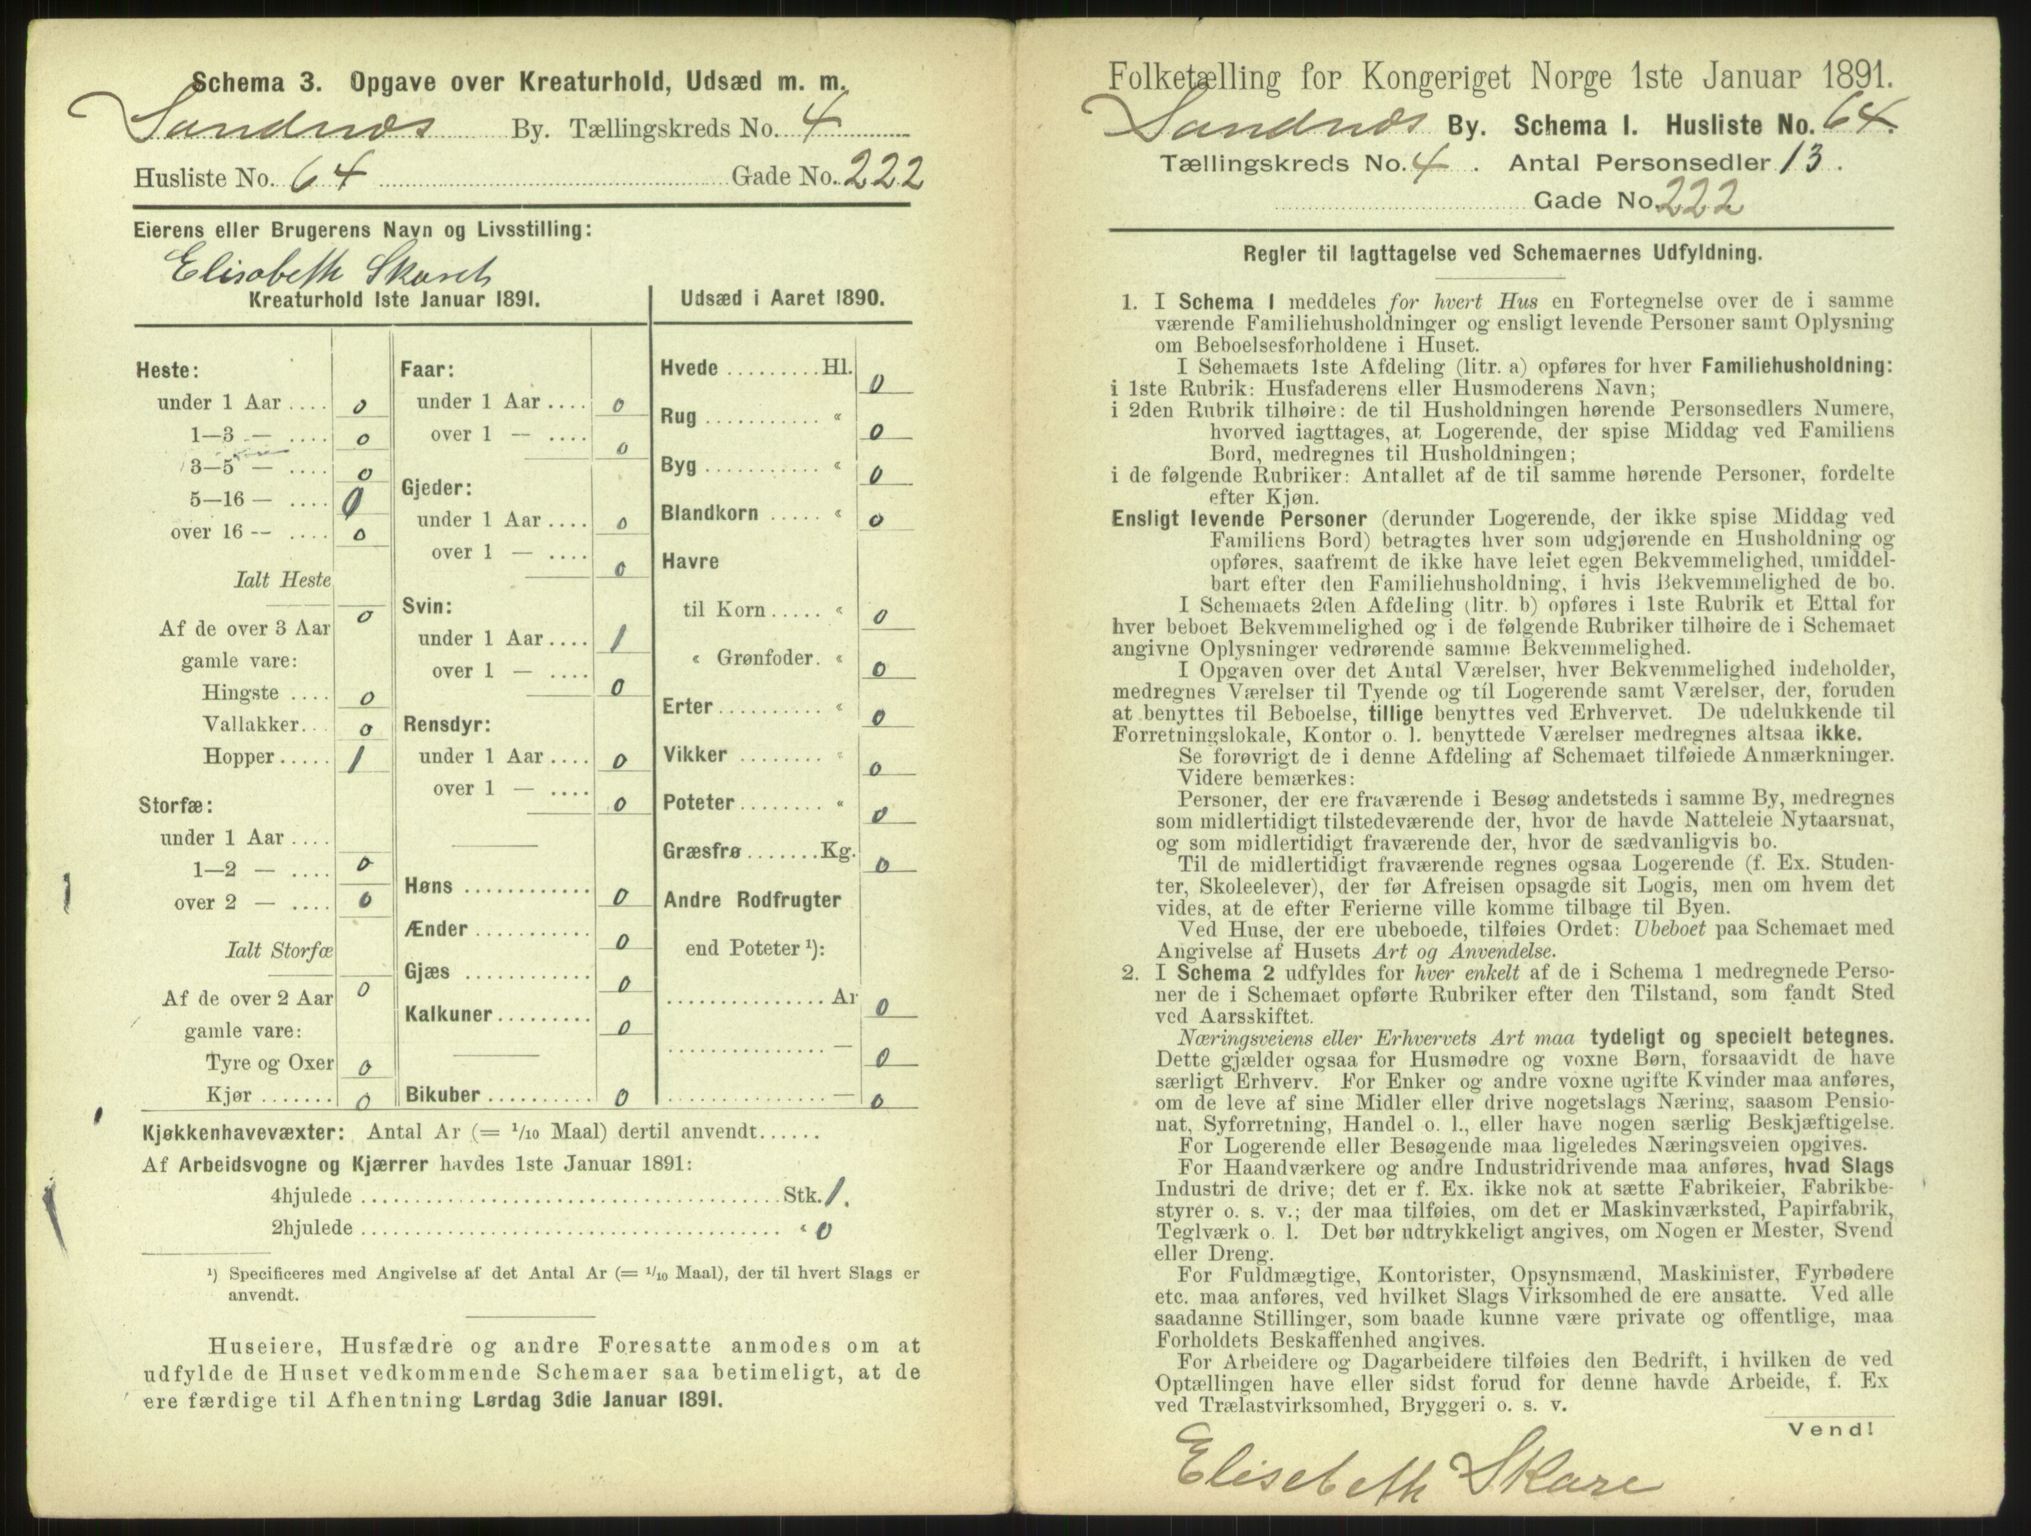 Schema 3. Opgave over Kreaturhold, Udsæd m. m.
Sandnæs By. Tællingskreds No. 4
Husliste No. 64 Gade No. 222
Eierens eller Brugerens Navn og Livsstilling:
Elisabeth Skaret
Kreaturhold 1ste Januar 1891.
Heste:
under 1 Aar .... 0
1—3 — .... 0
3—5 — .... 0
5—16 — .... 0
over 16 -- .... 0
Ialt Heste
0
Af de over 3 Aar
gamle vare:
Hingste .... 0
Vallakker... 0
Hopper..... 1
Storfæ:
under 1 Aar ....
1—2 — .... 0
over 2 — .... 0
Ialt Storfæ
0
Af de over 2 Aar
gamle vare:
Tyre og Oxer 0
Kjør ....... 0
Faar:
under 1 Aar .... 0
over 1 — .... 0
Gjeder:
under 1 Aar .... 0
over 1 — .... 0
Svin:
under 1 Aar .... 1
over 1 — .... 0
Rensdyr:
under 1 Aar .... 0
over 1 — .... 0
Høns ............ 0
Ænder ........... 0
Gjæs ............ 0
Kalkuner......... 0
Bikuber .......... 0
Udsæd i Aaret 1890.
Hvede .........Hl. 0
Rug ........... « 0
Byg ........... « 0
Blandkorn ..... « 0
Havre
til Korn..... « 0
« Grønfoder. « 0
Erter .......... « 0
Vikker ........ « 0
Poteter........ « 0
Græsfrø.......Kg. 0
Andre Rodfrugter
end Poteter ¹):
...............Ar 0
............... — 0
............... — 0
Kjøkkenhavevæxter: Antal Ar (= 1/10 Maal) dertil anvendt......
Af Arbeidsvogne og Kjærrer havdes 1ste Januar 1891:
4hjulede ........................................Stk. 1.
2hjulede ........................................ « 0
¹) Specificeres med Angivelse af det Antal Ar (= 1/10 Maal), der til hvert Slags er
anvendt.
Huseiere, Husfædre og andre Foresatte anmodes om at
udfylde de Huset vedkommende Schemaer saa betimeligt, at de
ere færdige til Afhentning Lørdag 3die Januar 1891.
Folketælling for Kongeriget Norge 1ste Januar 1891.
Sandnæs By. Schema I. Husliste No. 64.
Tællingskreds No. 4 . Antal Personsedler 13 .
Gade No. 222
Regler til Iagttagelse ved Schemaernes Udfyldning.
1. I Schema 1 meddeles for hvert Hus en Fortegnelse over de i samme
værende Familiehusholdninger og ensligt levende Personer samt Oplysning
om Beboelsesforholdene i Huset.
I Schemaets 1ste Afdeling (litr. a) opføres for hver Familiehusholdning:
i 1ste Rubrik: Husfaderens eller Husmoderens Navn;
i 2den Rubrik tilhøire: de til Husholdningen hørende Personsedlers Numere,
hvorved iagttages, at Logerende, der spise Middag ved Familiens
Bord, medregnes til Husholdningen;
i de følgende Rubriker: Antallet af de til samme hørende Personer, fordelte
efter Kjøn.
Ensligt levende Personer (derunder Logerende, der ikke spise Middag ved
Familiens Bord) betragtes hver som udgjørende en Husholdning og
opføres, saafremt de ikke have leiet egen Bekvemmelighed, umiddel-
bart efter den Familiehusholdning, i hvis Bekvemmelighed de bo.
I Schemaets 2den Afdeling (litr. b) opføres i 1ste Rubrik et Ettal for
hver beboet Bekvemmelighed og i de følgende Rubriker tilhøire de i Schemaet
angivne Oplysninger vedrørende samme Bekvemmelighed.
I Opgaven over det Antal Værelser, hver Bekvemmelighed indeholder,
medregnes Værelser til Tyende og til Logerende samt Værelser, der, foruden
at benyttes til Beboelse, tillige benyttes ved Erhvervet. De udelukkende til
Forretningslokale, Kontor o. l. benyttede Værelser medregnes altsaa ikke.
Se forøvrigt de i denne Afdeling af Schemaet tilføiede Anmærkninger.
Videre bemærkes:
Personer, der ere fraværende i Besøg andetsteds i samme By, medregnes
som midlertidigt tilstedeværende der, hvor de havde Natteleie Nytaarsnat,
og som midlertidigt fraværende der, hvor de sædvanligvis bo.
Til de midlertidigt fraværende regnes ogsaa Logerende (f. Ex. Studen-
ter, Skoleelever), der før Afreisen opsagde sit Logis, men om hvem det
vides, at de efter Ferierne ville komme tilbage til Byen.
Ved Huse, der ere ubeboede, tilføies Ordet: Ubeboet paa Schemaet med
Angivelse af Husets Art og Anvendelse.
2. I Schema 2 udfyldes for hver enkelt af de i Schema 1 medregnede Perso-
ner de i Schemaet opførte Rubriker efter den Tilstand, som fandt Sted
ved Aarsskiftet.
Næringsveiens eller Erhvervets Art maa tydeligt og specielt betegnes.
Dette gjælder ogsaa for Husmødre og voxne Børn, forsaavidt de have
særligt Erhverv. For Enker og andre voxne ugifte Kvinder maa anføres,
om de leve af sine Midler eller drive nogetslags Næring, saasom Pensio-
nat, Syforretning, Handel o. l., eller have nogen særlig Beskjæftigelse.
For Logerende eller Besøgende maa ligeledes Næringsveien opgives.
For Haandværkere og andre Industridrivende maa anføres, hvad Slags
Industri de drive; det er f. Ex. ikke nok at sætte Fabrikeier, Fabrikbe-
styrer o. s. v.; der maa tilføies, om det er Maskinværksted, Papirfabrik,
Teglværk o. l. Det bør udtrykkeligt angives, om Nogen er Mester, Svend
eller Dreng.
For Fuldmægtige, Kontorister, Opsynsmænd, Maskinister, Fyrbødere
etc. maa anføres, ved hvilket Slags Virksomhed de ere ansatte. Ved alle
saadanne Stillinger, som baade kunne være private og offentlige, maa
Forholdets Beskaffenhed angives.
For Arbeidere og Dagarbeidere tilføies den Bedrift, i hvilken de ved
Optællingen have eller sidst forud for denne havde Arbeide, f. Ex
ved Trælastvirksomhed, Bryggeri o. s. v.
Vend!
Elisebeth Skare